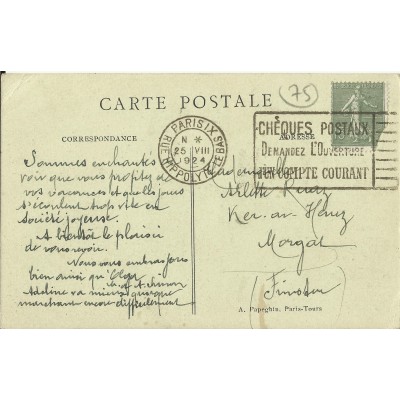 75
CARTE POSTALE
CORRESPONDANCE
ADRESSE
PARIS IX
RUE HIPPOLYTE LEBAS
N *
25 VIII
1924
CHÈQUES POSTAUX
DEMANDEZ L'OUVERTURE
D'UN COMPTE COURANT
Sommes enchantés
voir que vous profitez de
vos vacances et que les jours
s'écoulent trop vite en
société joyeuse.
A bientôt le plaisir
de vous revoir.
Nous vous embrassons
bien ainsi qu'Olga
Adeline va mieux quoique
marchant encore difficilement
Mademoiselle
Arlette
Ker-an-
Morgat
(Finistère)
A. Papeghin, Paris-Tours